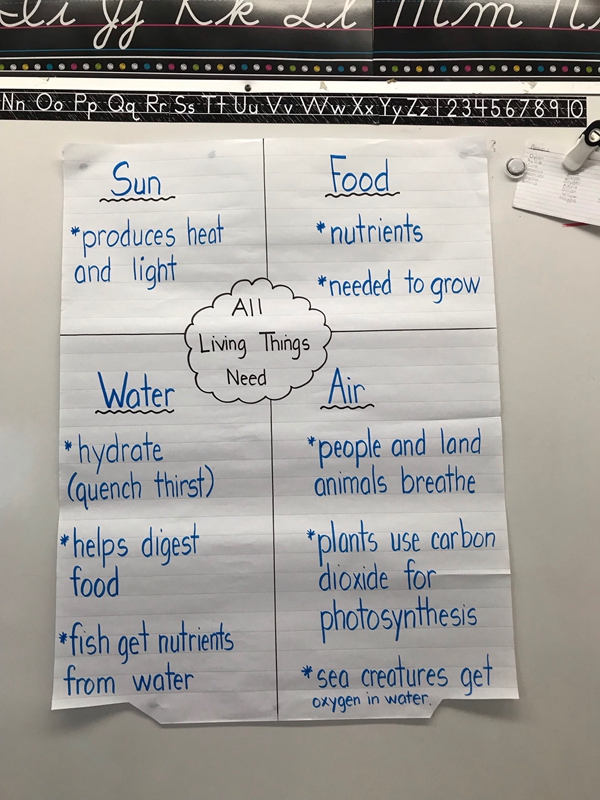 Ii Jj Kk Ll Mm N
Nn Oo Pp Qq Rr Ss Tt Uu Vv Ww Xx Yy Zz 1 2 3 4 5 6 7 8 9 10
Sun
*produces heat
and light
Food
*nutrients
*needed to grow
All
Living Things
Need
Water
*hydrate
(quench thirst)
*helps digest
food
*fish get nutrients
from water
Air
*people and land
animals breathe
*plants use carbon
dioxide for
photosynthesis
*sea creatures get
oxygen in water.